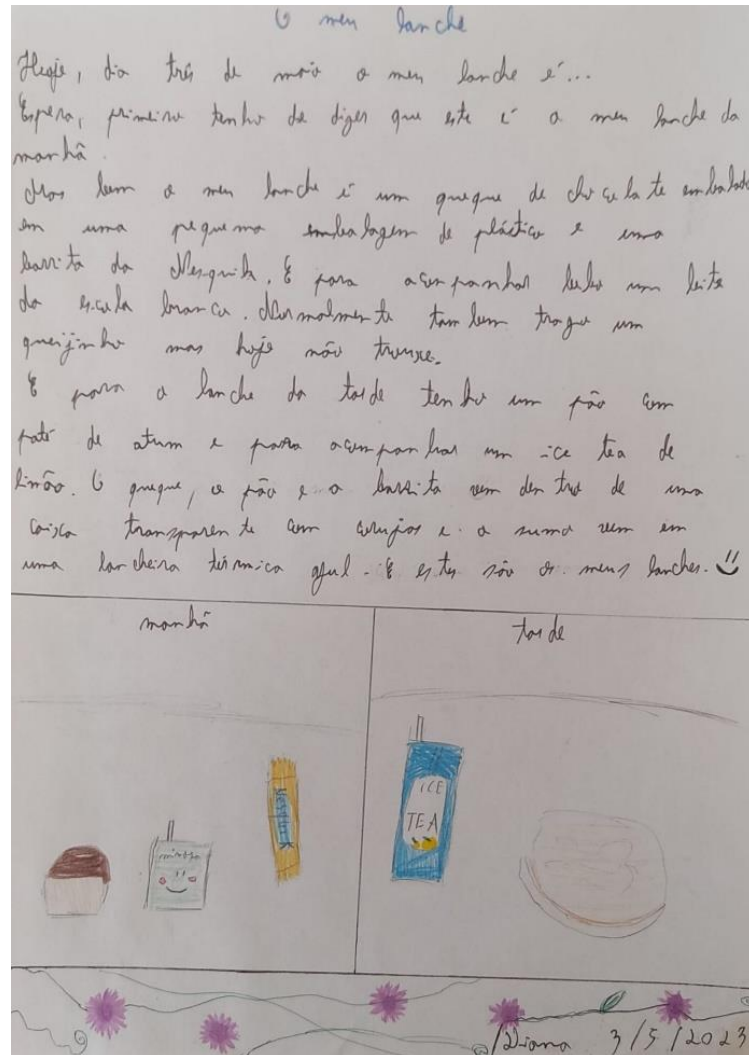 O meu lanche
Hoje, dia três de maio o meu lanche é...
Espera, primeiro tenho de dizer que este é o meu lanche da
manhã.
Mas bem o meu lanche é um queque de chocolate embalado
em uma pequena embalagem de plástico e uma
barrita da Nesquik. E para acompanhar bebo um leite
da escola branco. Normalmente tambem trago um
queijinho mas hoje não trouxe.
E para o lanche da tarde tenho um pão com
paté de atum e para acompanhar um ice tea de
limão. O queque, o pão e a barrita vem dentro de uma
caixa transparente com corujas e o sumo vem em
uma lancheira térmica azul. E estes são os meus lanches.
manhã
tarde
mimosa
NESQUIK
ICE
TEA
Diana 3/5/2023